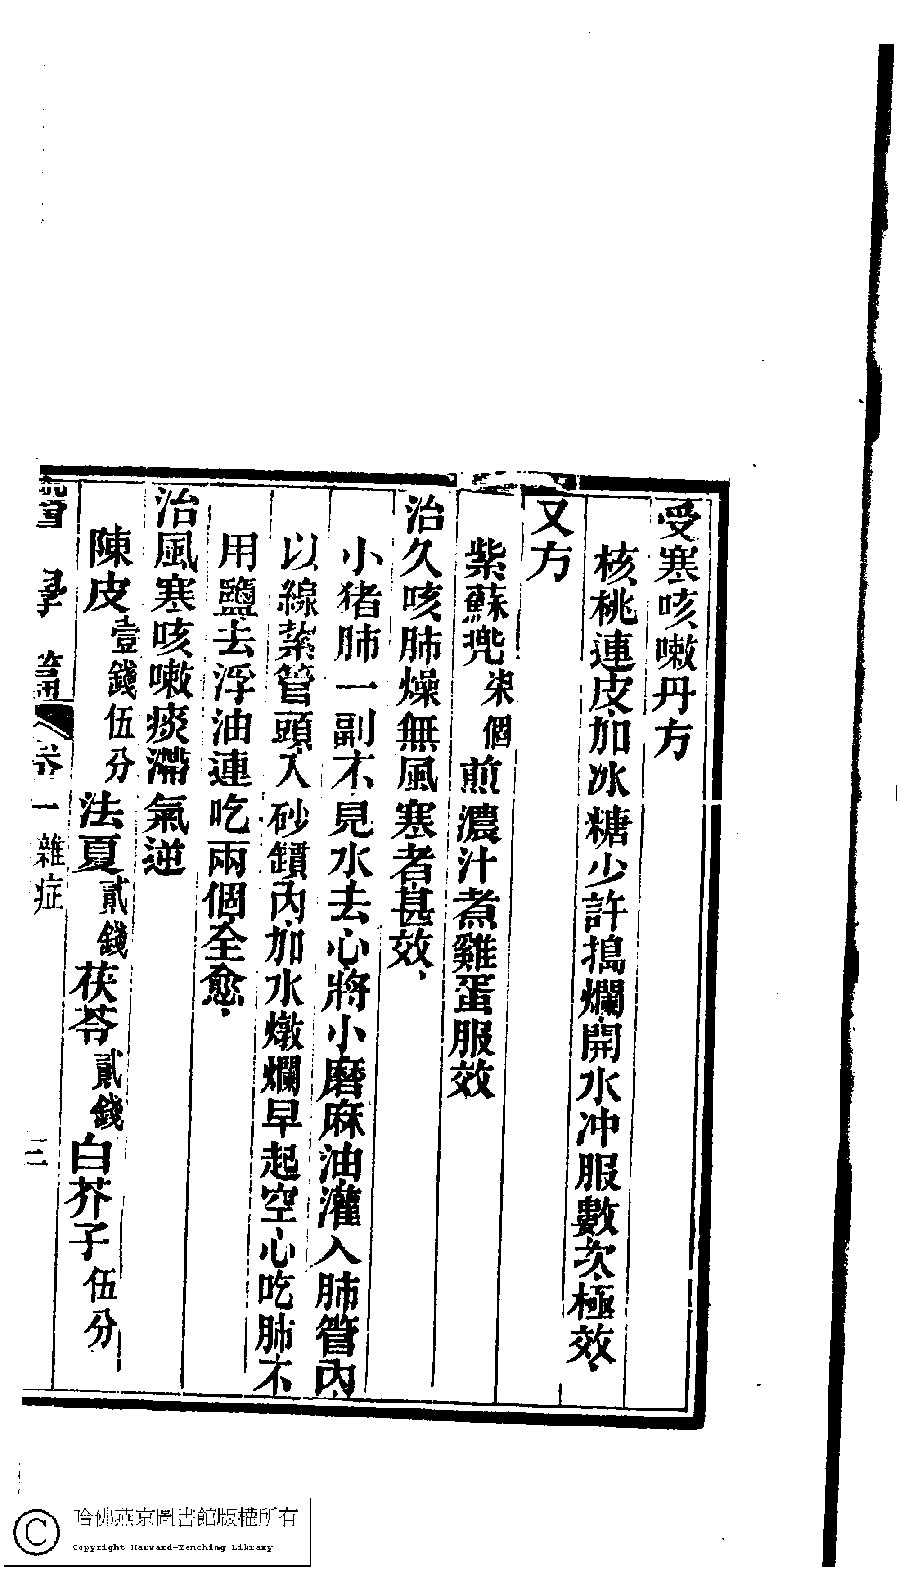 受寒咳嗽丹方
核桃連皮加冰糖少許搗爛開水冲服數次極效、
又方
紫蘇兠柒個煎濃汁煮雞蛋服效
治久咳肺燥無風寒者甚效、
小猪肺一副不見水去心將小磨麻油灌入肺管內
以線紮管頭入砂鑵內加水燉爛早起空心吃肺不
用鹽去浮油連吃兩個全愈、
治風寒咳嗽痰滯氣逆
陳皮壹錢伍分法夏貳錢茯苓貳錢白芥子伍分
篇 卷一雜症 三
哈佛燕京圖書館版權所有
Copyright Harvard-Yenching Library